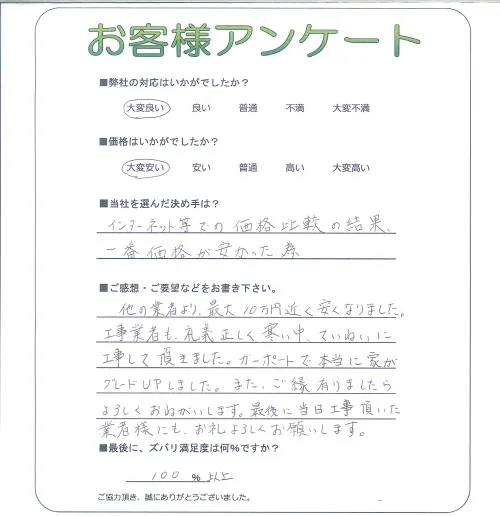 お客様アンケート
■弊社の対応はいかがでしたか？
大変良い 良い 普通 不満 大変不満
■価格はいかがでしたか？
大変安い 安い 普通 高い 大変高い
■当社を選んだ決め手は？
インターネット等での価格比較の結果、
一番価格が安かった為
■ご感想・ご要望などをお書き下さい。
他の業者より、最大10万円近く安くなりました。
工事業者も、礼義正しく寒い中、ていねいに
工事して頂きました。カーポートで本当に家が
グレードUPしました。また、ご縁有りましたら
よろしくおねがいします。最後に当日工事頂いた
業者様にも、お礼よろしくお願いします。
■最後に、ズバリ満足度は何％ですか？
100 ％ 以上
ご協力頂き、誠にありがとうございました。